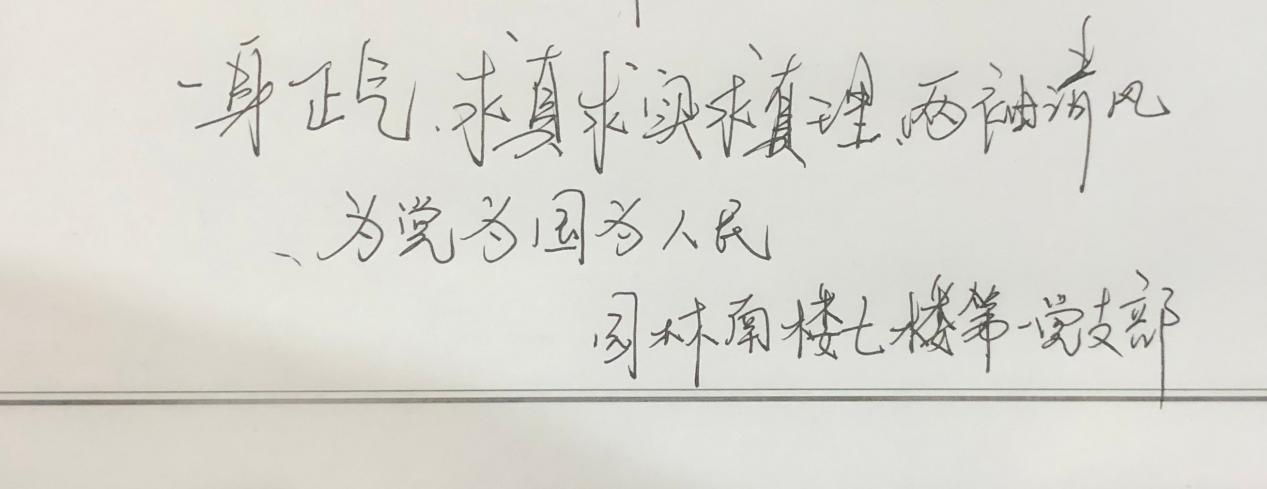 一身正气、求真求实求真理、两袖清风
、为党为国为人民
园林南楼七楼第一党支部